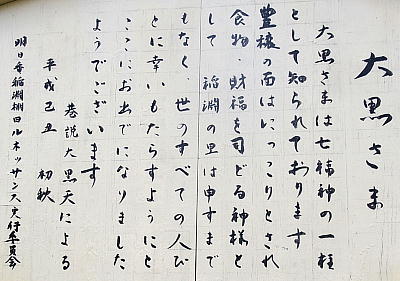 大黒さま
大黒さまは七福神の一柱
として知られております
豊穣の面はにっこりとされ
食物・財福を司どる神様と
して 稲渕の里は申すまで
もなく、世のすべての人び
とに幸いもたらすようにと
ここにお出でになりました
ようでございます
巷説大黒天による
平成己丑 初秋
明日香稲渕棚田ルネッサンス実行委員会